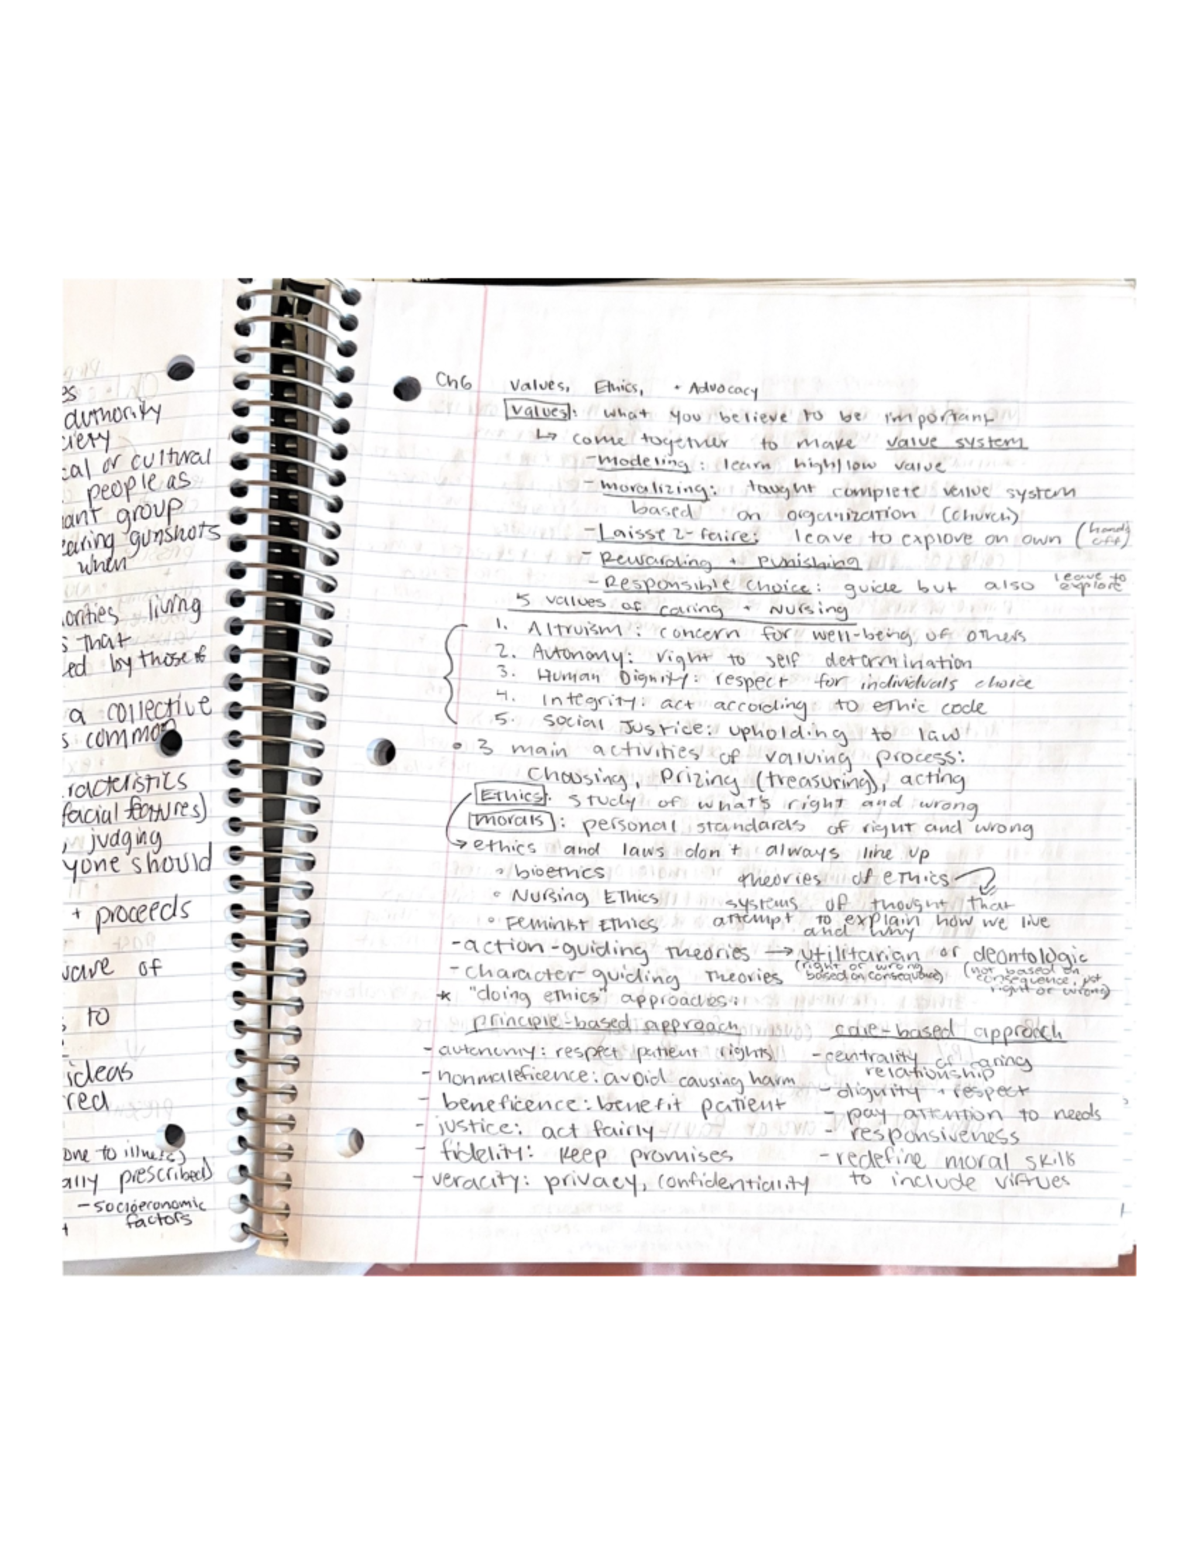 es
authority
ciety
cal or cultural
people as
nant group
earing gunshots
when
orities living
s that
ed by those of
a collective
s common
racteristics
facial features)
, judging
yone should
+ proceeds
ware of
s to
ideas
red
one to illness)
ally prescribed
- socioeconomic
factors
Ch6 Values, Ethics, + Advocacy
Values: what you believe to be important
↳ come together to make value system
- modeling: learn high/low value
- moralizing: taught complete value system
based on organization (church)
- Laissez-faire: leave to explore on own (hands off)
- Rewarding + punishing
- Responsible choice: guide but also leave to explore
5 values of caring + Nursing
1. Altruism: concern for well-being of others
2. Autonomy: right to self determination
3. Human Dignity: respect for individuals choice
4. Integrity: act according to ethic code
5. Social Justice: upholding to law
• 3 main activities of valuing process:
Choosing, Prizing (treasuring), acting
Ethics: study of what's right and wrong
morals: personal standards of right and wrong
→ ethics and laws don't always line up
• bioethics theories of ethics
• Nursing Ethics systems of thought that
• Feminist Ethics attempt to explain how we live
and why
- action-guiding theories → utilitarian or deontologic
- character-guiding theories (right or wrong based on consequence) (not based on consequence, just right or wrong)
* "doing ethics" approaches:
principle-based approach care-based approach
- autonomy: respect patient rights - centrality of caring relationship
- nonmaleficence: avoid causing harm - dignity + respect
- beneficence: benefit patient - pay attention to needs
- justice: act fairly - responsiveness
- fidelity: keep promises - redefine moral skills
- veracity: privacy, confidentiality to include virtues